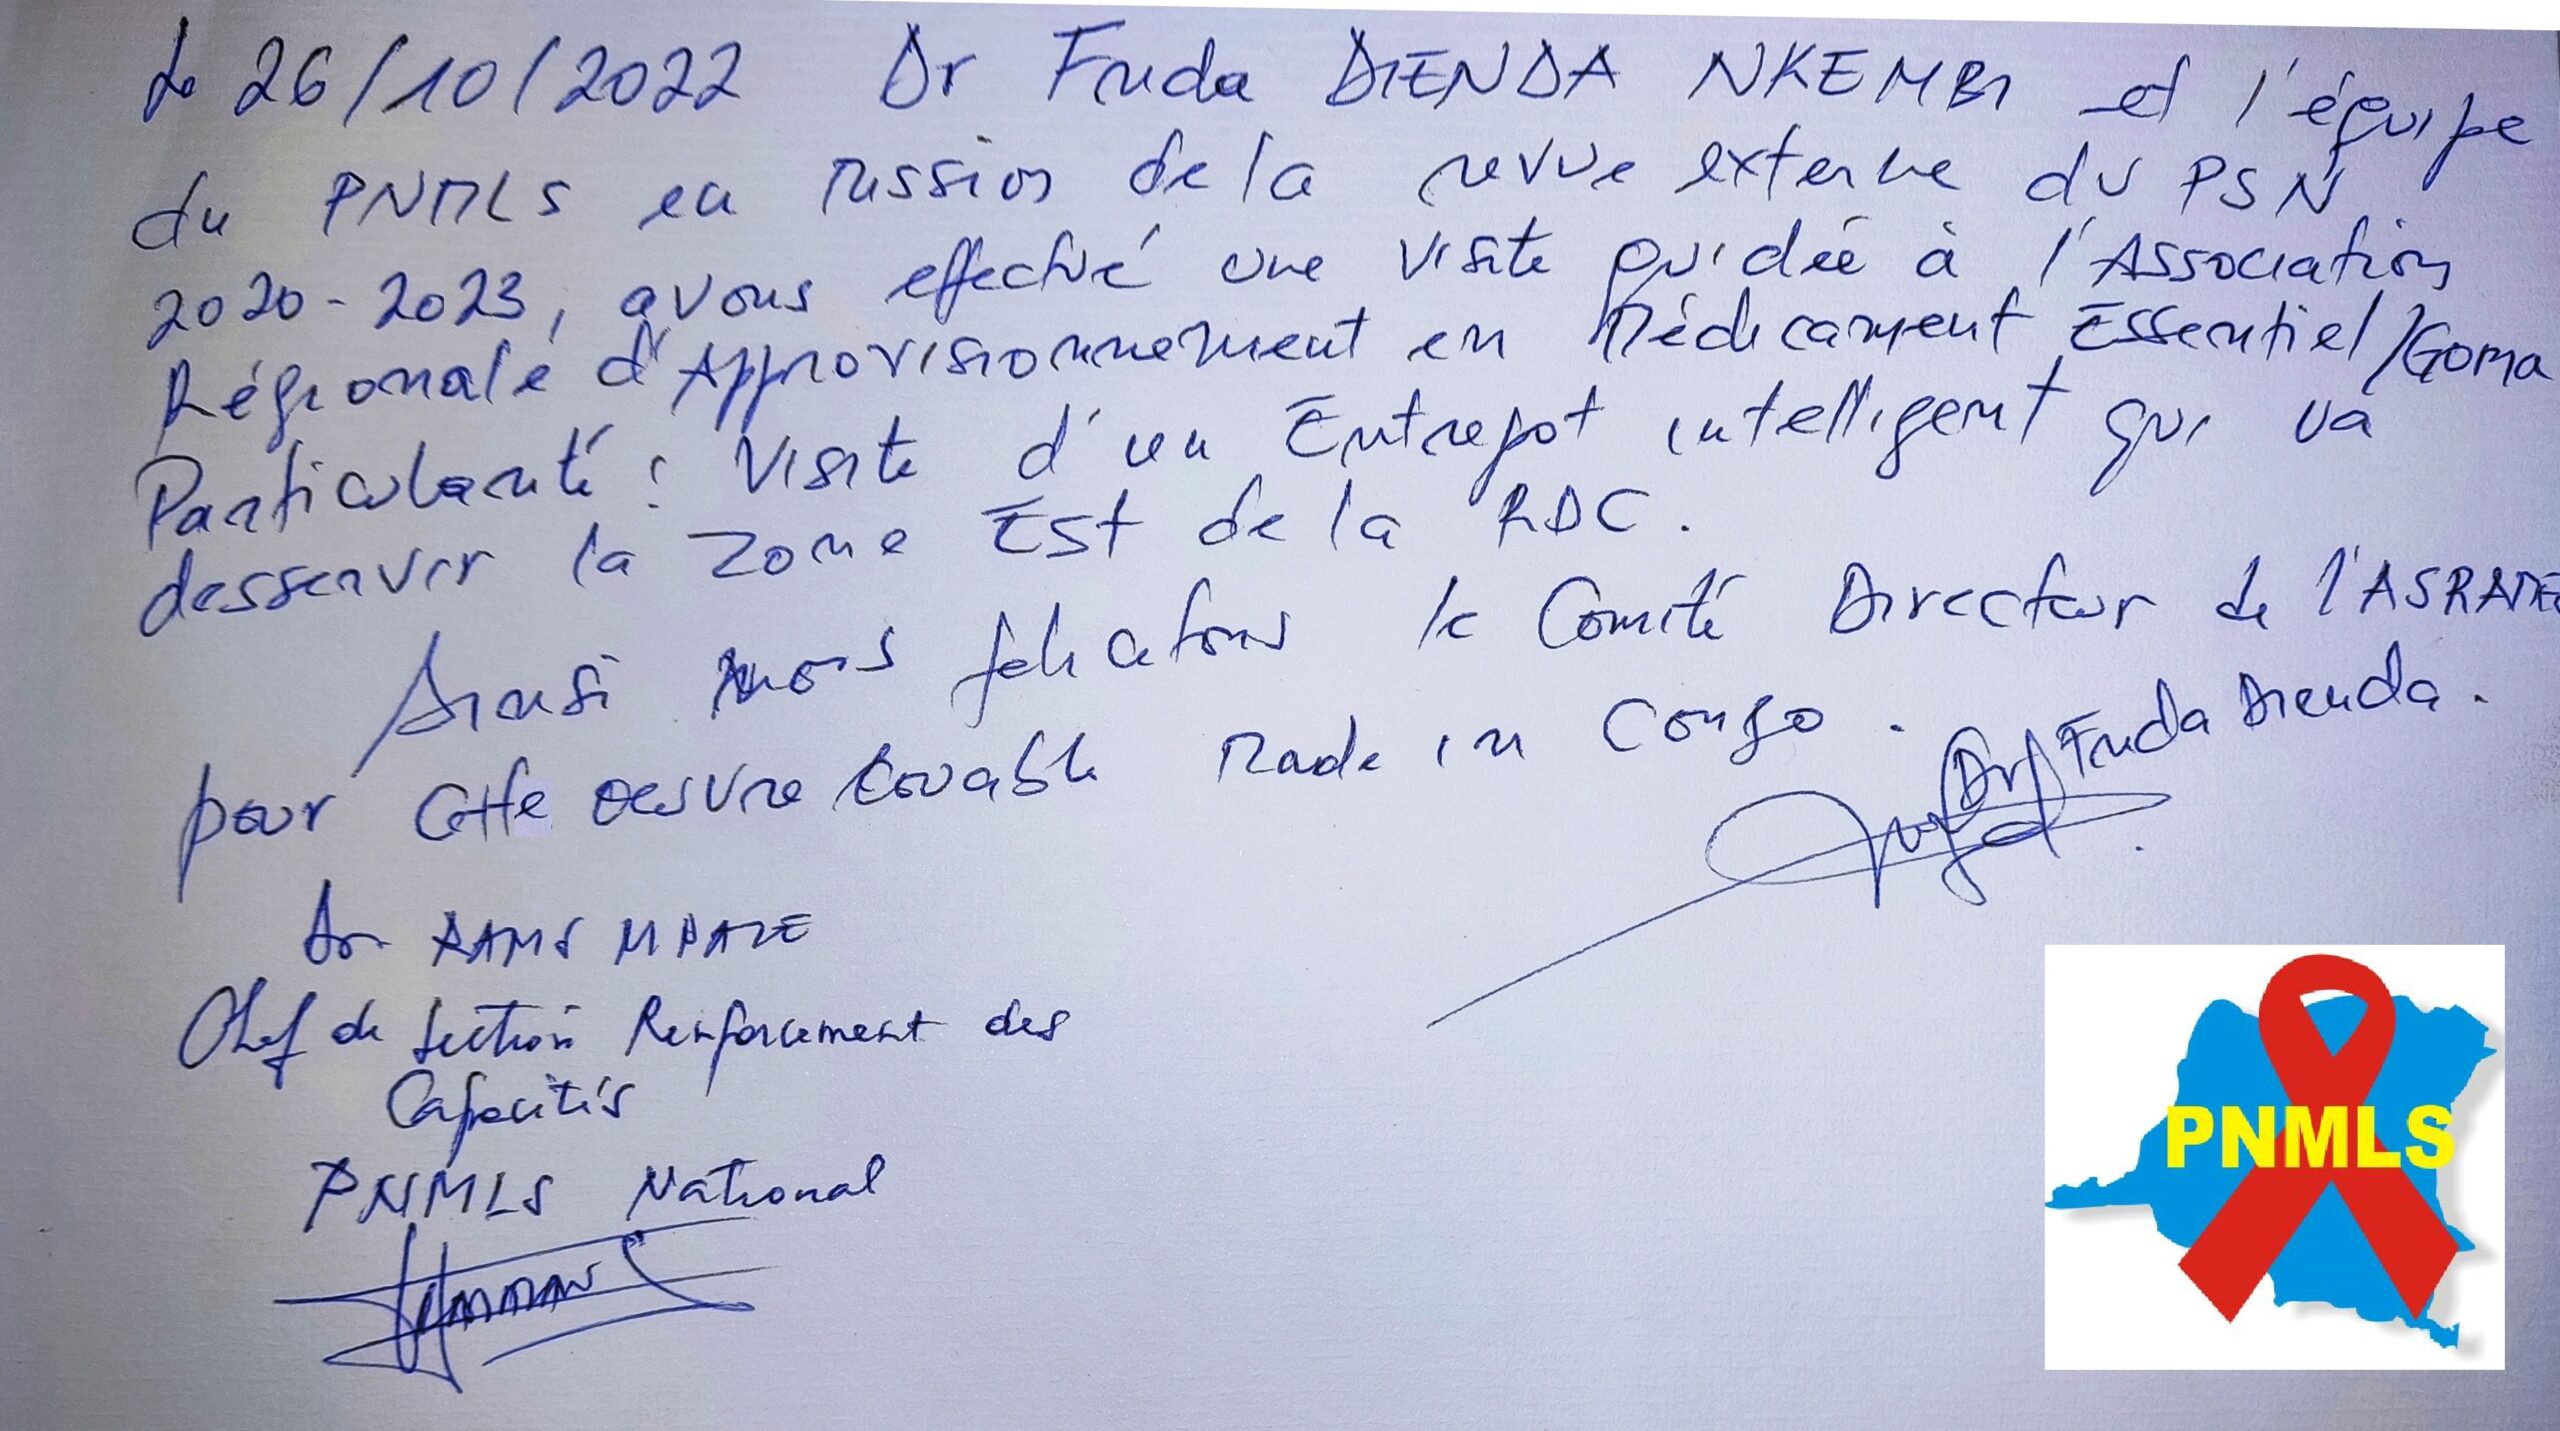 Le 26/10/2022 Dr Fruda DIENDA NKEMBI et l'équipe
du PNMLS en mission de la revue externe du PSN
2020-2023, avons effectué une visite guidée à l'Association
Régionale d'Approvisionnement en Médicament Essentiel/Goma
Particularité : Visite d'un Entrepot intelligent qui va
desservir la zone Est de la RDC.
Ainsi nous felicitons le Comité Directeur de l'ASRAMES
pour cette oeuvre louable Made in Congo.
Dr Fruda Dienda.
Dr RAMS
Chef de Section Renforcement des
Capacités
PNMLS National
PNMLS